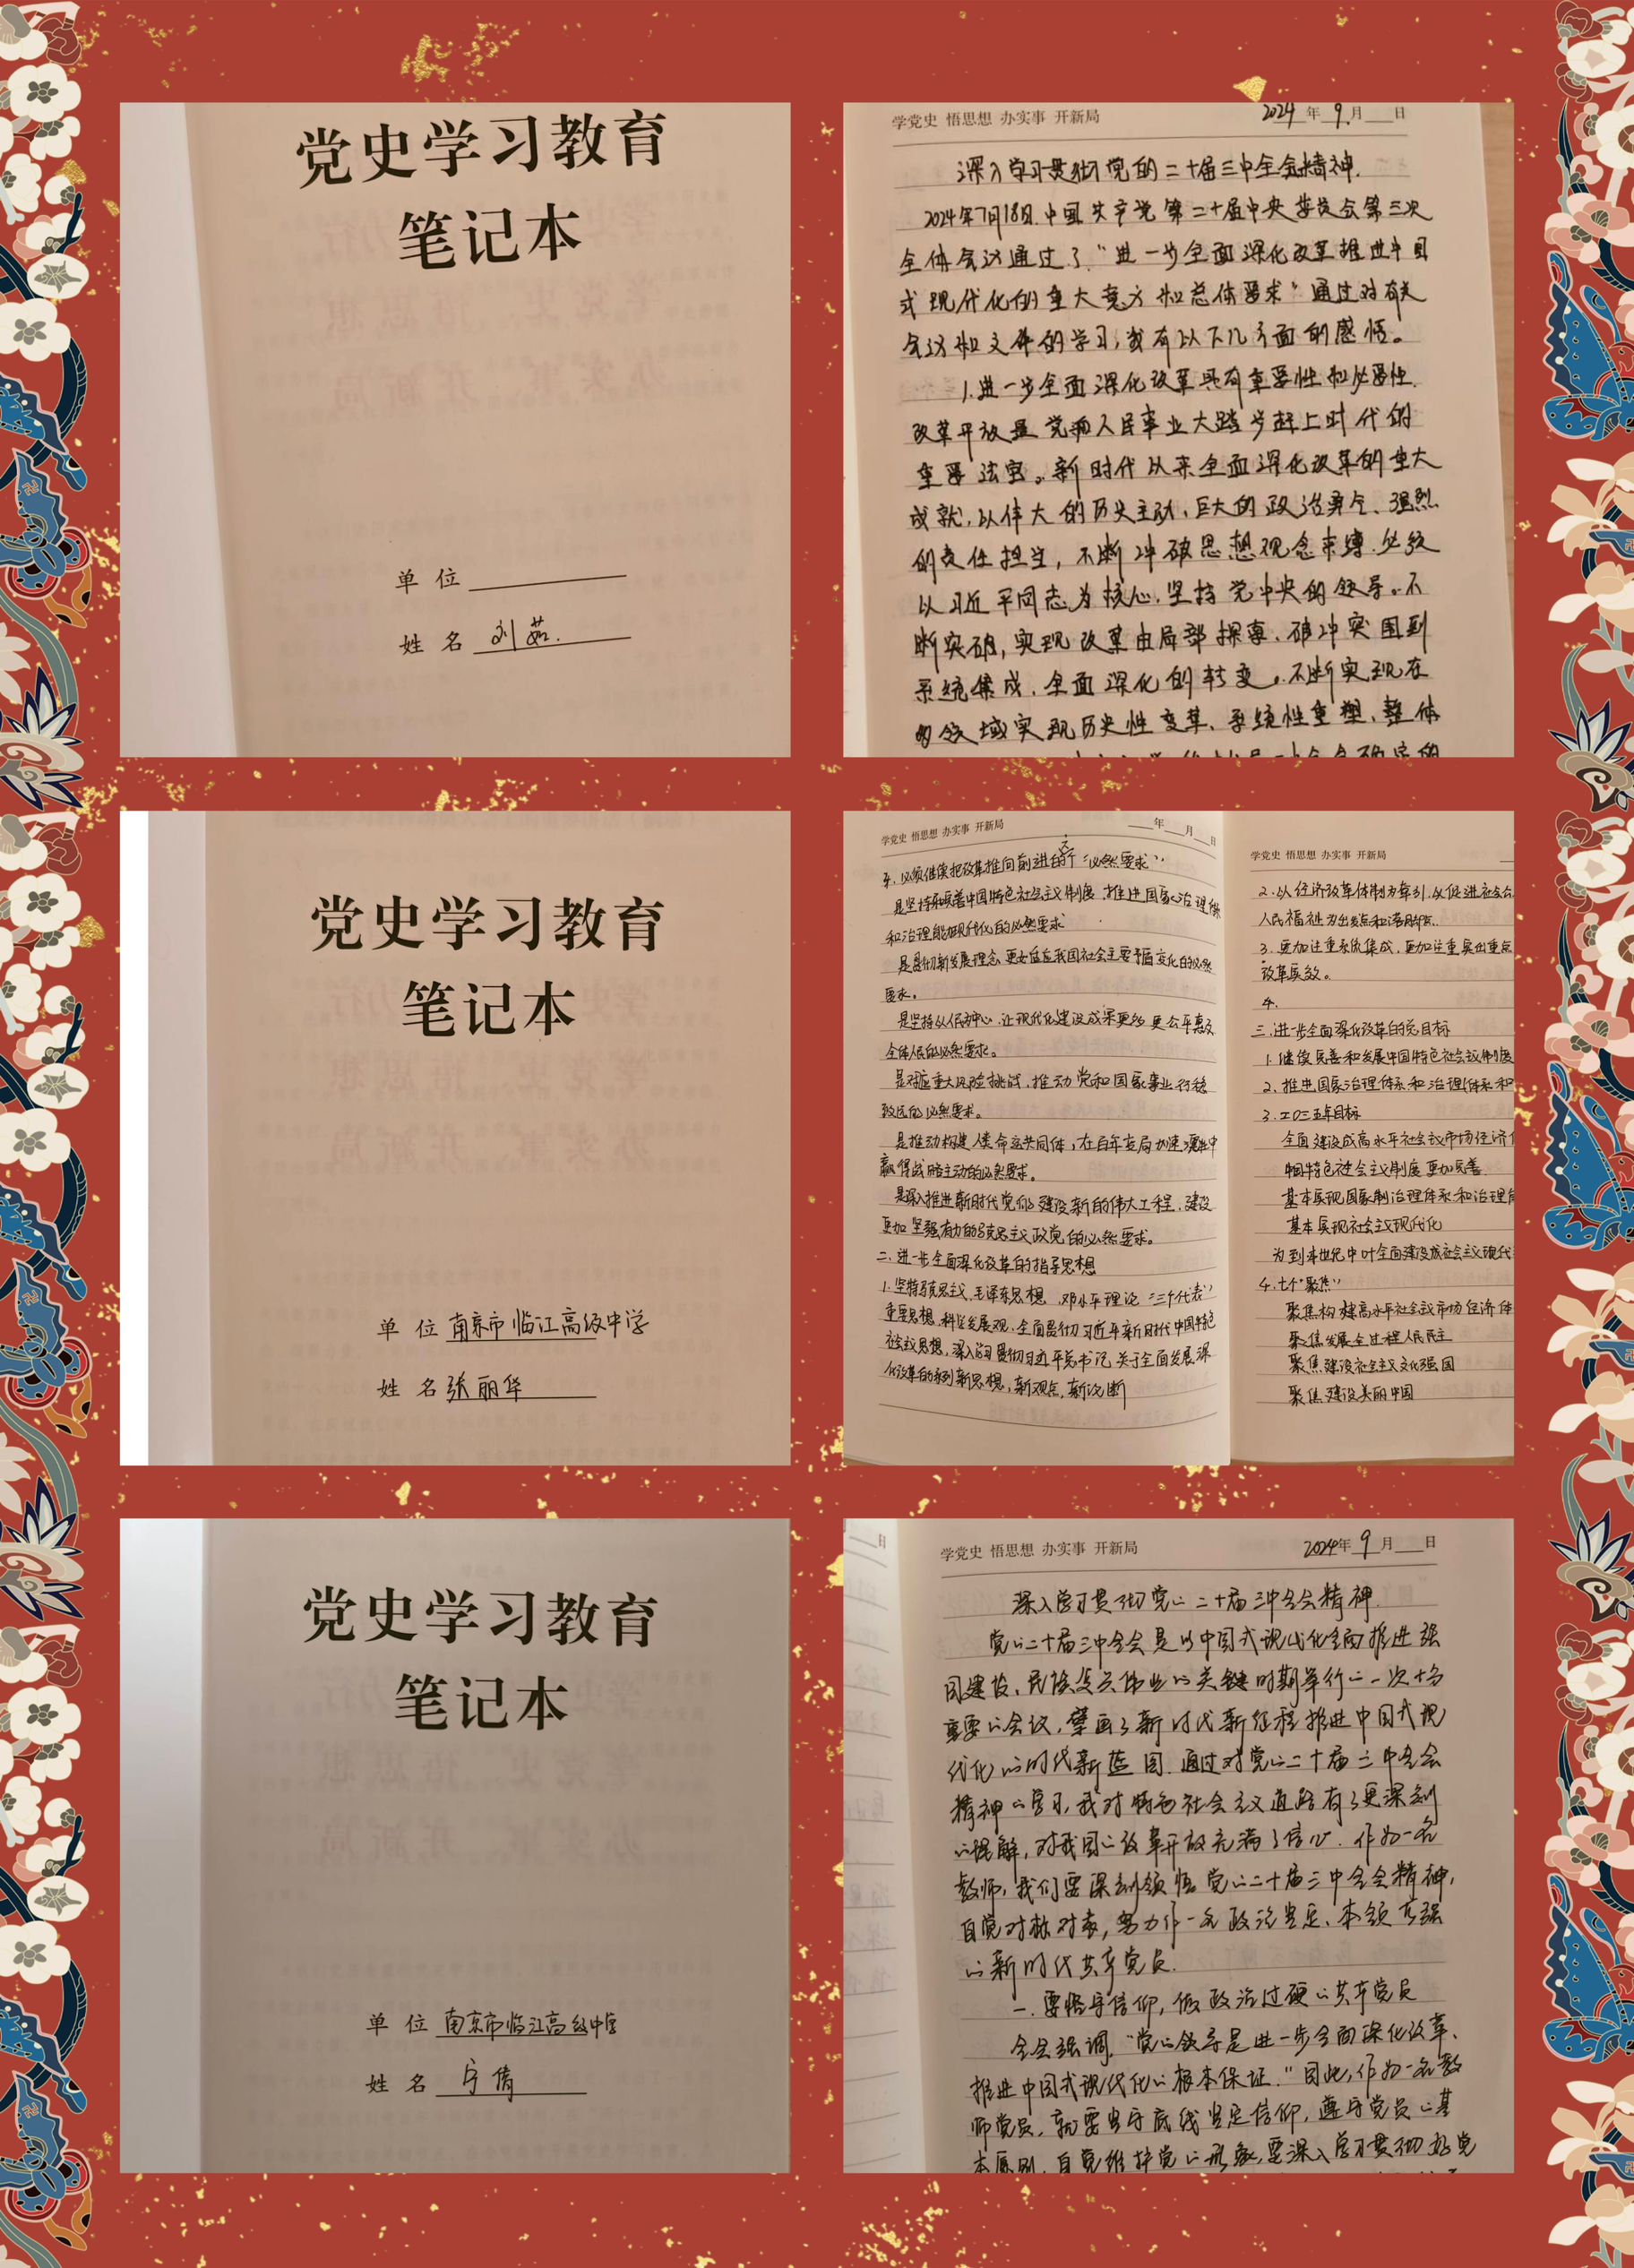 党史学习教育
笔记本
单 位
姓 名 刘茹
学党史 悟思想 办实事 开新局
2024 年 9 月 日
深入学习贯彻党的二十届三中全会精神.
2024年7月18日.中国共产党第二十届中央委员会第三次
全体会议通过了“进一步全面深化改革推进中国
式现代化的重大意义和总体要求”通过对有关
会议和文件的学习,我有以下几方面的感悟。
1.进一步全面深化改革具有重要性和必要性.
改革开放是党和人民事业大踏步赶上时代的
重要法宝。新时代以来全面深化改革的重大
成就,以伟大的历史主动、巨大的政治勇气、强烈
的责任担当,不断冲破思想观念束缚.必须
以习近平同志为核心.坚持党中央的领导。不
断突破,实现改革由局部探索、破冲突围到
系统集成、全面深化的转变。不断实现在
的领域实现历史性变革、系统性重塑、整体
党史学习教育
笔记本
单 位 南京市临江高级中学
姓 名 张丽华
学党史 悟思想 办实事 开新局
年 月 日
4.必须继续把改革推向前进的六个“必然要求”.
是坚持和完善中国特色社会主义制度、推进国家治理体系
和治理能力现代化的必然要求
是贯彻新发展理念、更好适应我国社会主要矛盾变化的必然
要求。
是坚持以人民为中心、让现代化建设成果更多更公平惠及
全体人民的必然要求。
是应对重大风险挑战、推动党和国家事业行稳
致远的必然要求。
是推动构建人类命运共同体,在百年变局加速演进中
赢得战略主动的必然要求。
是深入推进新时代党的建设新的伟大工程,建设
更加坚强有力的马克思主义政党的必然要求。
二.进一步全面深化改革的指导思想
1.坚持马克思主义、毛泽东思想、邓小平理论、“三个代表”
重要思想、科学发展观、全面贯彻习近平新时代中国特色
社会主义思想,深入学习贯彻习近平总书记关于全面发展深
化改革的系列新思想,新观点,新论断
学党史 悟思想 办实事 开新局
2.以经济改革体制为牵引,以促进社会公
人民福祉为出发点和落脚点.
3.更加注重系统集成,更加注重突出重点
改革实效。
4.
三.进一步全面深化改革的总目标
1.继续完善和发展中国特色社会主义制度
2.推进国家治理体系和治理体系和
3.二〇三五年目标
全面建设成高水平社会主义市场经济
中国特色社会主义制度更加完善
基本实现国家制治理体系和治理
基本实现社会主义现代化
为到本世纪中叶全面建设成社会主义现代
4.七个“聚焦”
聚焦构建高水平社会主义市场经济体
聚焦发展全过程人民民主
聚焦建设社会主义文化强国
聚焦建设美丽中国
党史学习教育
笔记本
单 位 南京市临江高级中学
姓 名 宁倩
学党史 悟思想 办实事 开新局
2024年 9 月 日
深入学习贯彻党的二十届三中全会精神.
党的二十届三中全会是以中国式现代化全面推进强
国建设、民族复兴伟业的关键时期举行的一次十分
重要的会议,擘画了新时代新征程推进中国式现
代化的时代新蓝图.通过对党的二十届三中全会
精神的学习,我对特色社会主义道路有了更深刻
的理解,对我国的改革开放充满了信心.作为一名
教师,我们要深刻领悟党的二十届三中全会精神,
自觉对标对表,努力作一名政治坚定、本领高强
的新时代共产党员.
一.要恪守信仰,做政治过硬的共产党员
全会强调,“党的领导是进一步全面深化改革、
推进中国式现代化的根本保证.”因此,作为一名教
师党员,就要坚守底线坚定信仰,遵守党员的基
本原则,自觉维护党的形象,要深入学习贯彻好党